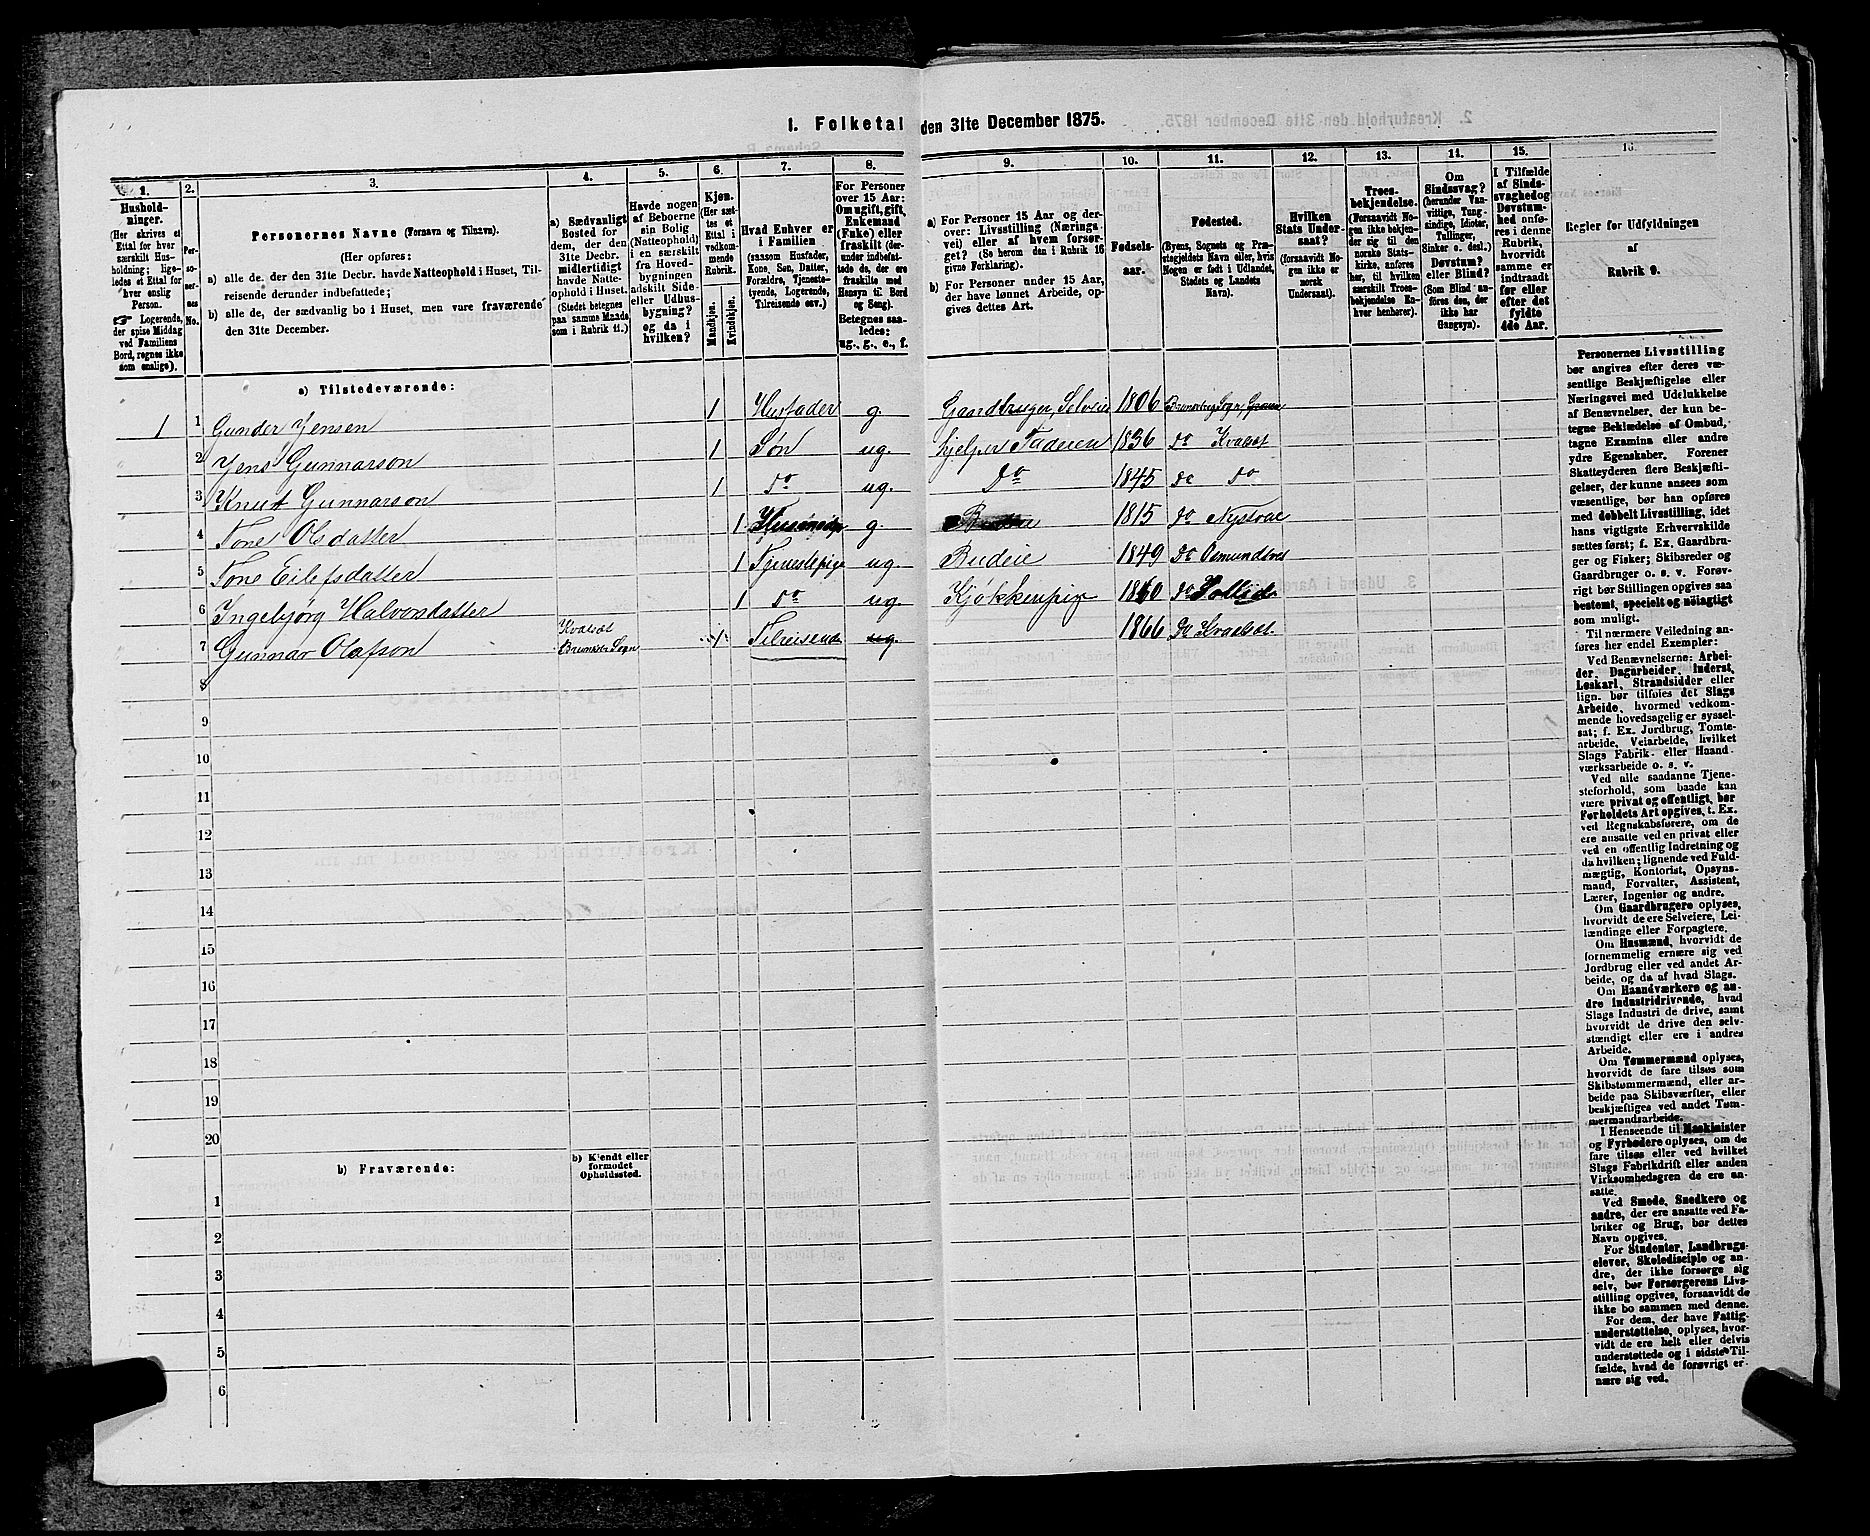 1. Folketal den 31te December 1875.
1. 2. 3. 4. 5. 6. 7. 8. 9. 10. 11. 12. 13. 14. 15. 16.
Hushold-
ninger.
(Her skrives et
Ettal for hver
særskilt Hus-
holdning; lige-
ledes et Ettal for
hver enslig
Person.
☞ Logerende,
der spise Middag
ved Familiens
Bord, regnes ikke
som enslige).
Per-
so-
ner-
nes
No.
Personernes Navne (Fornavn og Tilnavn).
(Her opføres:
a) alle de, der den 31te Decbr. havde Natteophold i Huset, Til-
reisende derunder indbefattede;
b) alle de, der sædvanlig bo i Huset, men vare fraværende
den 31te December.
a) Sædvanligt
Bosted for
dem, der den
31te Decbr.
midlertidigt
havde Natte-
ophold i Huset.
(Stedet betegnes
paa samme Maade
som i Rubrik 11.)
Havde nogen
af Beboerne
sin Bolig
(Natteophold)
i en særskilt
fra Hoved-
bygningen
adskilt Side-
eller Udhus-
bygning?
og da i
hvilken?
Kjøn.
(Her sæt-
tes et
Ettal i
vedkom-
mende
Rubrik.
Mandkjøn.
Kvindekjøn.
Hvad Enhver er
i Familien
(saasom Husfader,
Kone, Søn, Datter,
Forældre, Tjeneste-
tyende, Logerende,
Tilreisende osv.)
For Personer
over 15 Aar:
Om ugift, gift,
Enkemand
(Enke) eller
fraskilt (der-
under indbefat-
tede de, der ere
fraskilte med
Hensyn til Bord
og Seng).
Betegnes saa-
ledes:
ug., g., e., f.
a) For Personer 15 Aar og der-
over: Livsstilling (Nærings-
vei) eller af hvem forsør-
get? (Se herom den i Rubrik 16
givne Forklaring).
b) For Personer under 15 Aar,
der have lønnet Arbeide, op-
gives dettes Art.
Fødsels-
aar.
Fødested.
(Byens, Sognets og Præ-
stegjeldets Navn eller, hvis
Nogen er født i Udlandet,
Stedets og Landets
Navn).
Hvilken
Stats Under-
saat?
(forsaavidt No-
gen ikke er
norsk
Undersaat).
Troes-
bekjendelse.
(Forsaavidt No-
gen ikke bekjen-
der sig til den
norske Stats-
kirke, anføres
her, til hvilken
særskilt Troes-
bekjendelse En-
hver henhører).
Om
Sindssvag?
(herunder Van-
vittige, Tung-
sindige, Idioter,
Tullinger,
Sinker o. desl.)
Døvstum?
eller Blind?
(Som Blind an-
føres den, der
ikke har
Gangsyn).
I Tilfælde
af Sinds-
svaghed og
Døvstum-
hed anfø-
res i denne
Rubrik,
hvorvidt
samme er
indtraadt
før eller
efter det
fyldte
4de Aar.
Regler for Udfyldningen
af
Rubrik 9.
a) Tilstedeværende:
1 1 Gunder Jensen 1 Husfader g. Gaardbruger, Selveier 1806 Brunkeberg Sogn
2 Jens Gunnarson 1 Søn ug. hjelper Faderen 1836 do Kvalsæt
3 Knut Gunnarson 1 do ug. do 1845 do do
4 Tone Olsdatter 1 g. 1815 do Nystrae
5 Tone Eilefsdatter 1 Tjenestepige ug. Budeie 1849 do
6 Ingebjörg Halvorsdatter 1 do ug. Kjøkkenpige 1860 do
7 Gunnar Olafson Kvalsæt Tilreisende ug. 1866 do Kvalsæt
8
9
10
11
12
13
14
15
16
17
18
19
20
b) Fraværende:
b) Kjendt eller
formodet
Opholdssted.
1
2
3
4
5
6
Personernes Livsstilling
bør angives efter deres væ-
sentlige Beskjæftigelse eller
Næringsvei med Udelukkelse
af Benævnelser, der kun be-
tegne Beklædelse af Ombud,
tagne Examina eller andre
ydre Egenskaber. Forener
Skatteyderen flere Beskjæfti-
gelser, der kunne ansees som
væsentlige, bør han opføres
med dobbelt Livsstilling, idet
hans vigtigste Erhvervskilde
sættes først; f. Ex. Gaardbru-
ger og Fisker; Skibsreder og
Gaardbruger o. s. v. Forøv-
rigt bør Stillingen opgives saa
bestemt, specielt og nøiagtigt
som muligt.
Til nærmere Veiledning an-
føres her endel Exempler:
Ved Benævnelserne: Arbei-
der, Dagarbeider, Inderst,
Løskarl, Strandsidder eller
lign. bør tilføies det Slags
Arbeide, hvormed vedkom-
mende hovedsagelig er syssel-
sat; f. Ex. Jordbrug, Tomte-
arbeide, Veiarbeide, hvilket
Slags Fabrik- eller Haand-
værksarbeide o. s. v.
Ved alle saadanne Tjene-
steforhold, som baade kan
være privat og offentligt, bør
Forholdets Art opgives, t. Ex.
ved Regnskabsførere, om de
ere ansatte ved en privat eller
ved en offentlig Indretning og
da hvilken; lignende ved Fuld-
mægtig, Kontorist, Opsyns-
mand, Forvalter, Assistent,
Lærer, Ingeniør og andre.
Om Gaardbrugere oplyses,
hvorvidt de ere Selveiere, Lei-
lændinge eller Forpagtere.
Om Husmænd, hvorvidt de
fornemmelig ernære sig ved
Jordbrug eller ved andet Ar-
beide, og da af hvad Slags.
Om Haandværkere og an-
dre Industridrivende, hvad
Slags Industri de drive, samt
hvorvidt de drive den selv-
stændigt eller ere i andres
Arbeide.
Om Tømmermænd oplyses,
hvorvidt de fare tilsøs som
Skibstømmermænd, eller ar-
beide paa Skibsværfter, eller
beskjæftiges ved andet Tøm-
mermandsarbeide.
I Henseende til Maskinister
og Fyrbødere oplyses, om de
fare tilsøs eller ved hvilket
Slags Fabrikdrift eller anden
Virksomhedsgren de ere an-
satte.
Ved Smede, Snedkere og
andre, der ere ansatte ved Fa-
briker og Brug, bør dettes
Navn opgives.
For Studenter, Landbrugs-
elever, Skoledisciple og an-
dre, der ikke forsørge sig
selv, bør Forsørgerens Livs-
stilling opgives, forsaavidt de
ikke bo sammen med denne.
For dem, der have Fattig-
understøttelse, oplyses, hvor-
vidt de ere helt eller delvis
understøttede og i sidste Til-
fælde, hvad de forøvrigt er-
nære sig ved.